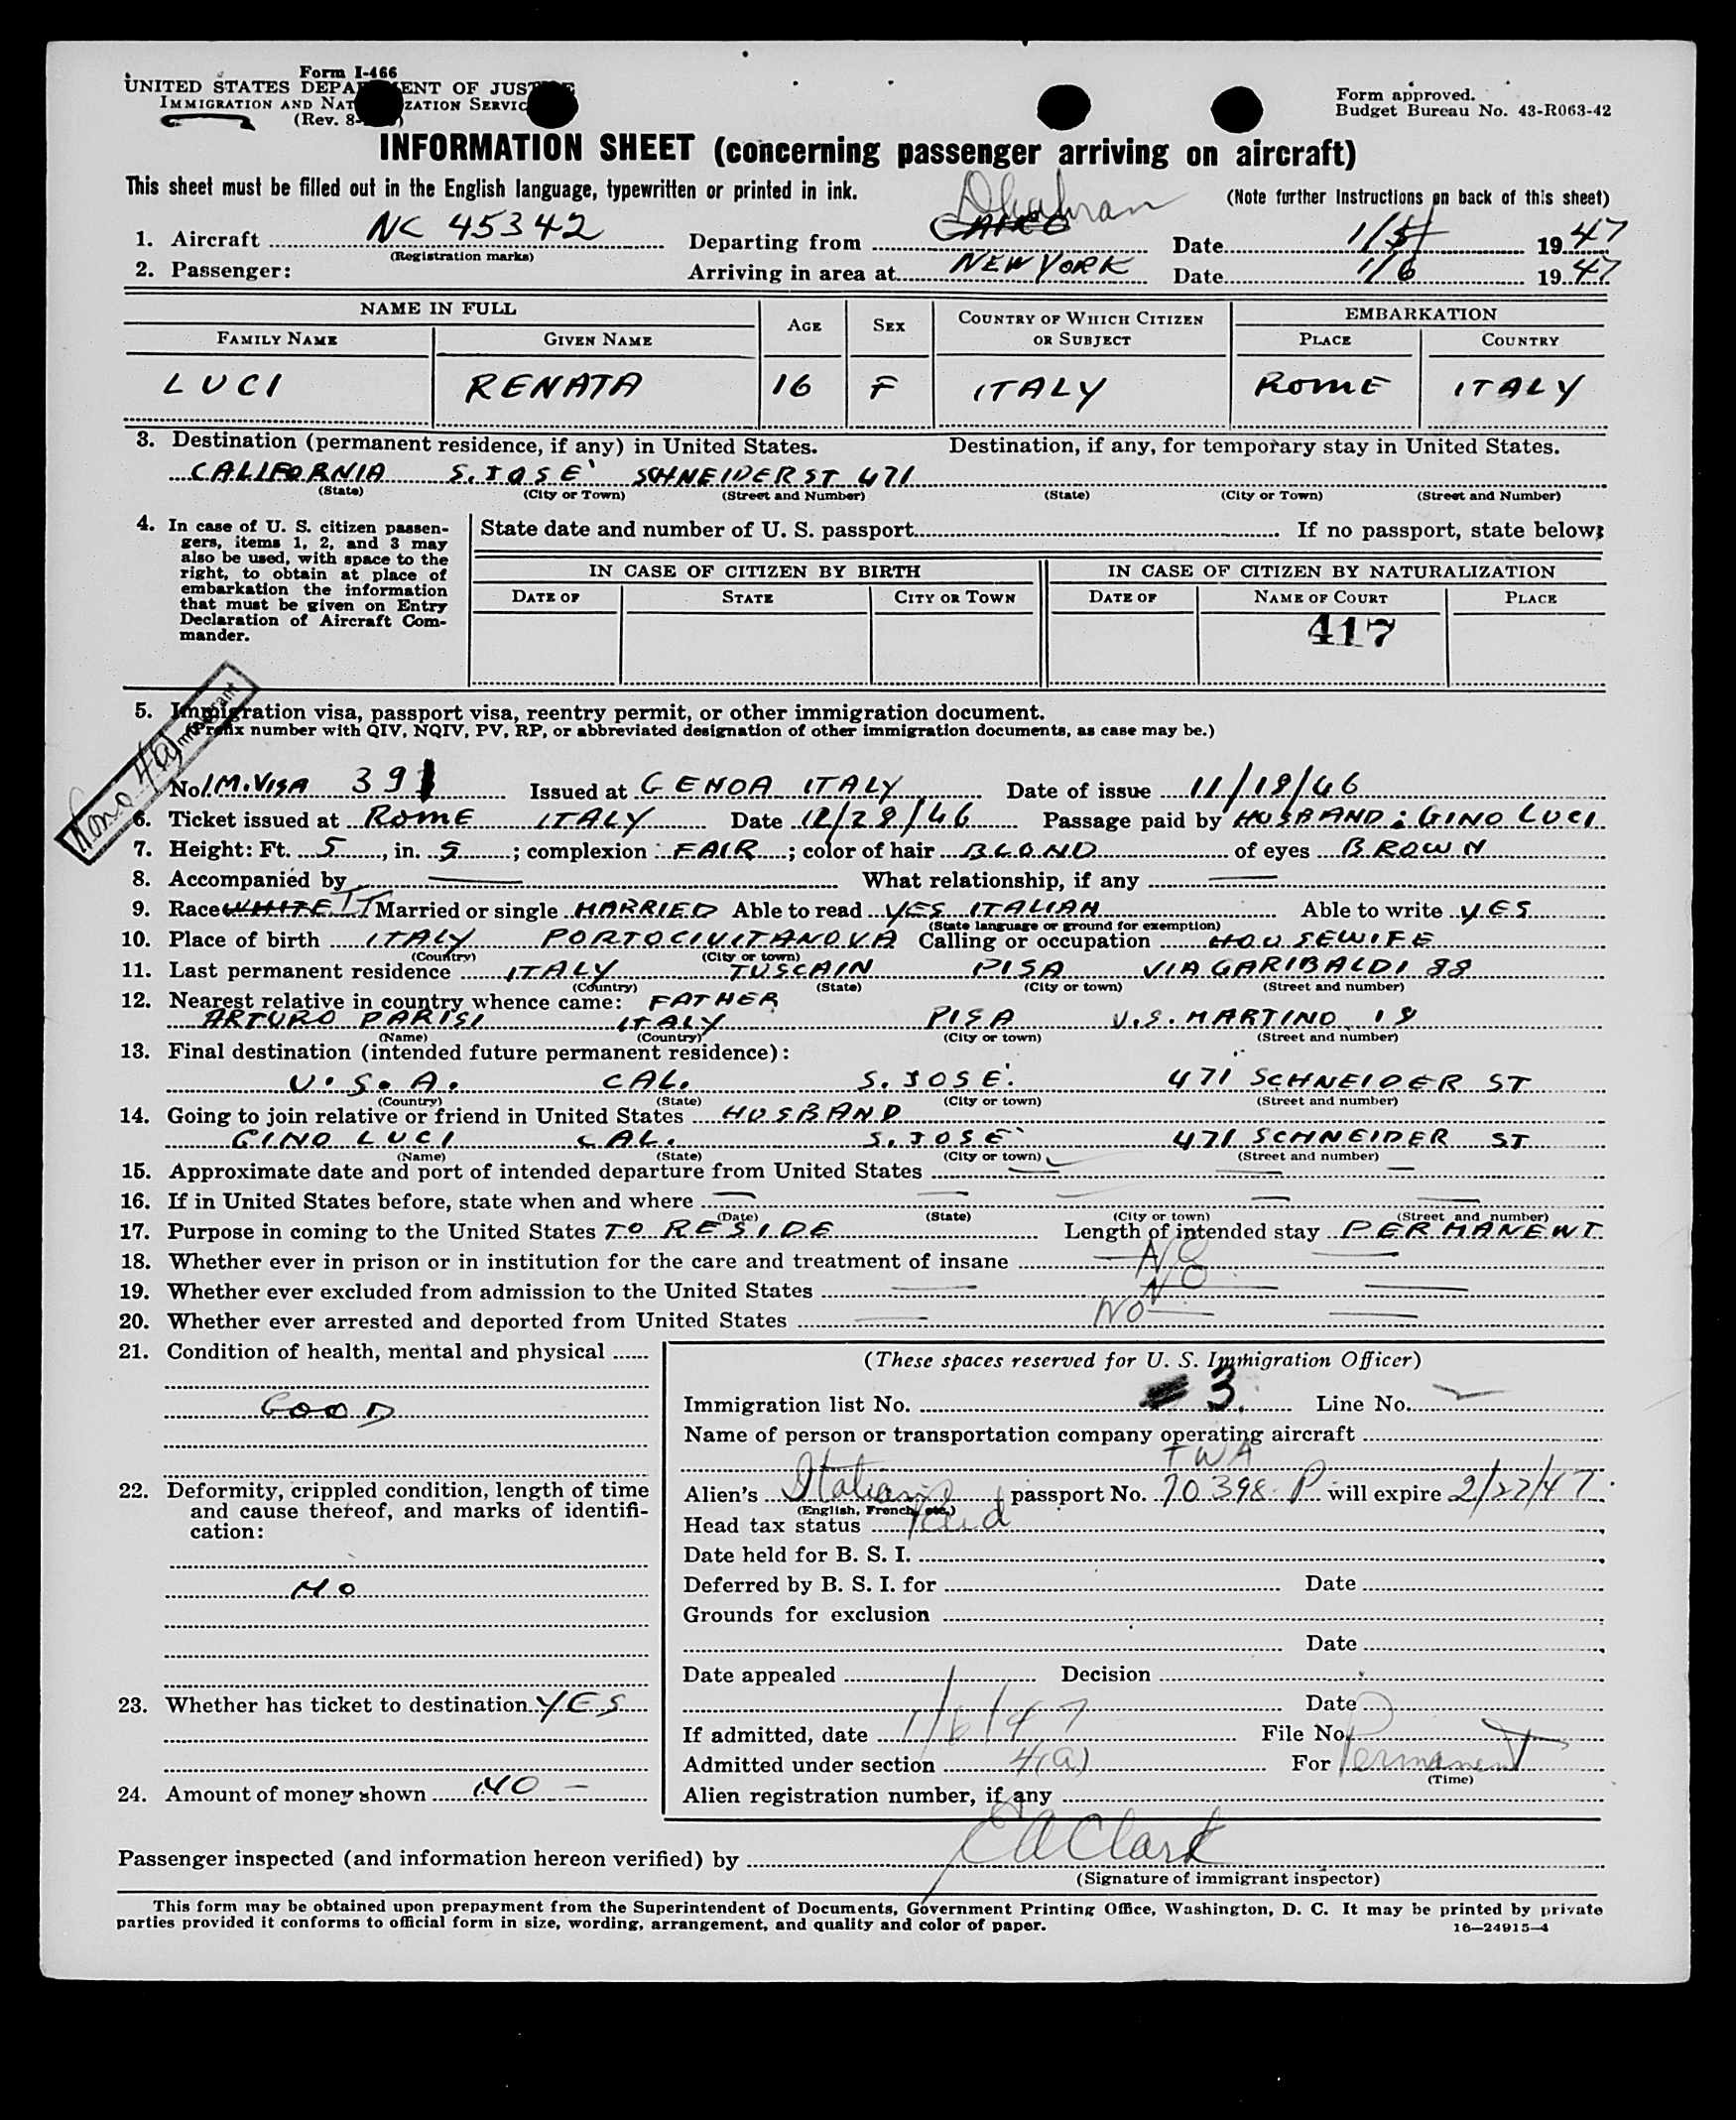 Form I-466
UNITED STATES DEPA ENT OF JUST E
IMMIGRATION AND NAT ZATION SERVIC
(Rev. 8-
Form approved.
Budget Bureau No. 43-R063-42
INFORMATION SHEET (concerning passenger arriving on aircraft)
This sheet must be filled out in the English language, typewritten or printed in ink.
(Note further Instructions on back of this sheet)
Dhahran
1. Aircraft NC 45342 Departing from CAIRO Date 1/5/ 1947
(Registration marks)
2. Passenger: Arriving in area at NEW YORK Date 1/6 1947
NAME IN FULL AGE SEX COUNTRY OF WHICH CITIZEN OR SUBJECT EMBARKATION
FAMILY NAME GIVEN NAME PLACE COUNTRY
LUCI RENATA 16 F ITALY ROME ITALY
3. Destination (permanent residence, if any) in United States. Destination, if any, for temporary stay in United States.
CALIFORNIA S. JOSE' SCHNEIDER ST 471
(State) (City or Town) (Street and Number) (State) (City or Town) (Street and Number)
4. In case of U. S. citizen passen-
gers, items 1, 2, and 3 may
also be used, with space to the
right, to obtain at place of
embarkation the information
that must be given on Entry
Declaration of Aircraft Com-
mander.
State date and number of U. S. passport If no passport, state below:
IN CASE OF CITIZEN BY BIRTH IN CASE OF CITIZEN BY NATURALIZATION
DATE OF STATE CITY OR TOWN DATE OF NAME OF COURT PLACE
417
5. Immigration visa, passport visa, reentry permit, or other immigration document.
(Prefix number with QIV, NQIV, PV, RP, or abbreviated designation of other immigration documents, as case may be.)
No. IM. VISA 391 Issued at GENOA ITALY Date of issue 11/19/46
6. Ticket issued at ROME ITALY Date 12/28/46 Passage paid by HUSBAND: GINO LUCI
7. Height: Ft. 5, in. 5; complexion FAIR; color of hair BLOND of eyes BROWN
8. Accompanied by — What relationship, if any —
9. Race WHITE IT Married or single MARRIED Able to read YES ITALIAN Able to write YES
(State language or ground for exemption)
10. Place of birth ITALY PORTOCIVITANOVA Calling or occupation HOUSEWIFE
(Country) (City or town)
11. Last permanent residence ITALY TUSCAIN PISA VIA GARIBALDI 88
(Country) (State) (City or town) (Street and number)
12. Nearest relative in country whence came: FATHER
ARTURO PARISI ITALY PISA V.S. MARTINO 19
(Name) (Country) (City or town) (Street and number)
13. Final destination (intended future permanent residence):
U.S.A. CAL. S. JOSE'. 471 SCHNEIDER ST
(Country) (State) (City or town) (Street and number)
14. Going to join relative or friend in United States HUSBAND
GINO LUCI CAL. S. JOSE' 471 SCHNEIDER ST
(Name) (State) (City or town) (Street and number)
15. Approximate date and port of intended departure from United States — — —
16. If in United States before, state when and where — — — — —
(Date) (State) (City or town) (Street and number)
17. Purpose in coming to the United States TO RESIDE Length of intended stay PERMANENT
18. Whether ever in prison or in institution for the care and treatment of insane — NO —
19. Whether ever excluded from admission to the United States — NO —
20. Whether ever arrested and deported from United States — NO —
21. Condition of health, mental and physical
GOOD
22. Deformity, crippled condition, length of time
and cause thereof, and marks of identifi-
cation:
NO
23. Whether has ticket to destination YES
24. Amount of money shown 140 —
(These spaces reserved for U. S. Immigration Officer)
Immigration list No. 3. Line No. 2
Name of person or transportation company operating aircraft
TWA
Alien's Italian passport No. 70398 P will expire 2/27/47
(English, French, etc.)
Head tax status Paid
Date held for B. S. I.
Deferred by B. S. I. for Date
Grounds for exclusion
Date
Date appealed Decision
Date
If admitted, date 1/6/47 File No.
Admitted under section 4(a) For Permanent
(Time)
Alien registration number, if any
Passenger inspected (and information hereon verified) by E A Clark
(Signature of immigrant inspector)
This form may be obtained upon prepayment from the Superintendent of Documents, Government Printing Office, Washington, D. C. It may be printed by private
parties provided it conforms to official form in size, wording, arrangement, and quality and color of paper. 16—24915-4